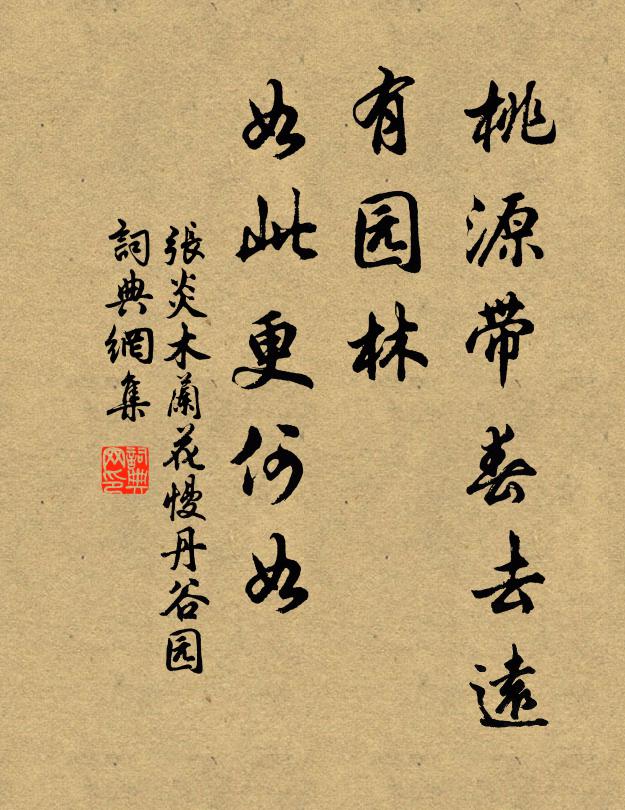 桃源带春去遠
有园林
如此更何如
張炎木蘭花慢丹谷园
詞典網集
詞典网印